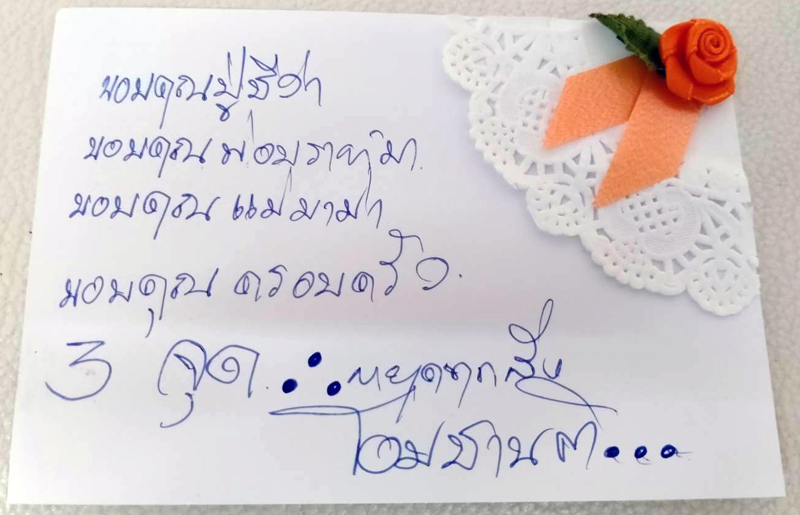 ขอบคุณปู่ชีวา
ขอบคุณ พ่อบราห์มา
ขอบคุณ แม่มาม่า
ขอบคุณ ครอบครัว
3 จุด ∴ หยุดทุกสิ่ง
โอมชานติ...